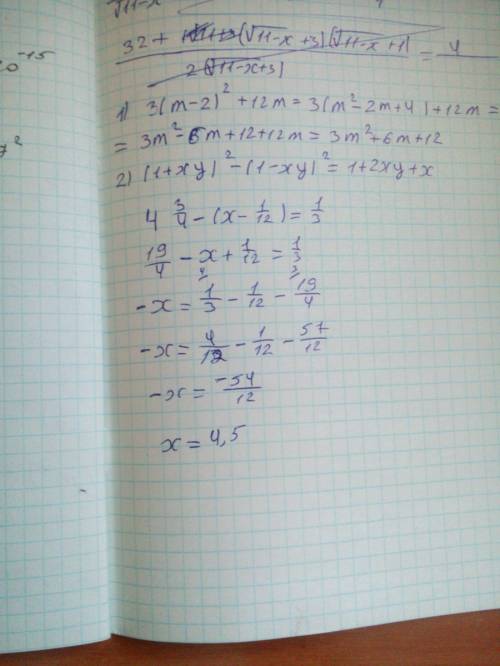 √11-x
32 + (√11-x +3)(√11-x +1) / 2(√11-x+3) = 4
1) 3(m-2)² + 12m = 3(m²-2m+4)+12m =
= 3m²-6m+12+12m = 3m²+6m+12
2) (1+xy)²-(1-xy)² = 1+2xy+x
4 3/4 - (x - 1/12) = 1/3
19/4 - x + 1/12 = 1/3
-x = 1/3 - 1/12 - 19/4
-x = 4/12 - 1/12 - 57/12
-x = -54/12
x = 4,5